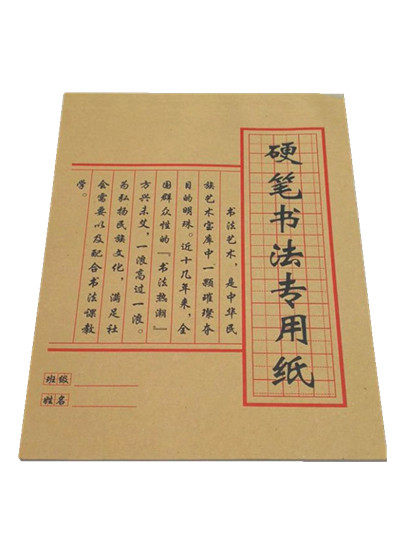 硬笔书法专用纸
书法艺术，是中华民
族艺术宝库中一颗璀璨夺
目的明珠。近十几年来，全
国群众性的『书法热潮』
方兴未艾，一浪高过一浪。
为弘扬民族文化，满足社
会需要以及配合书法课教
学。
班级
姓名